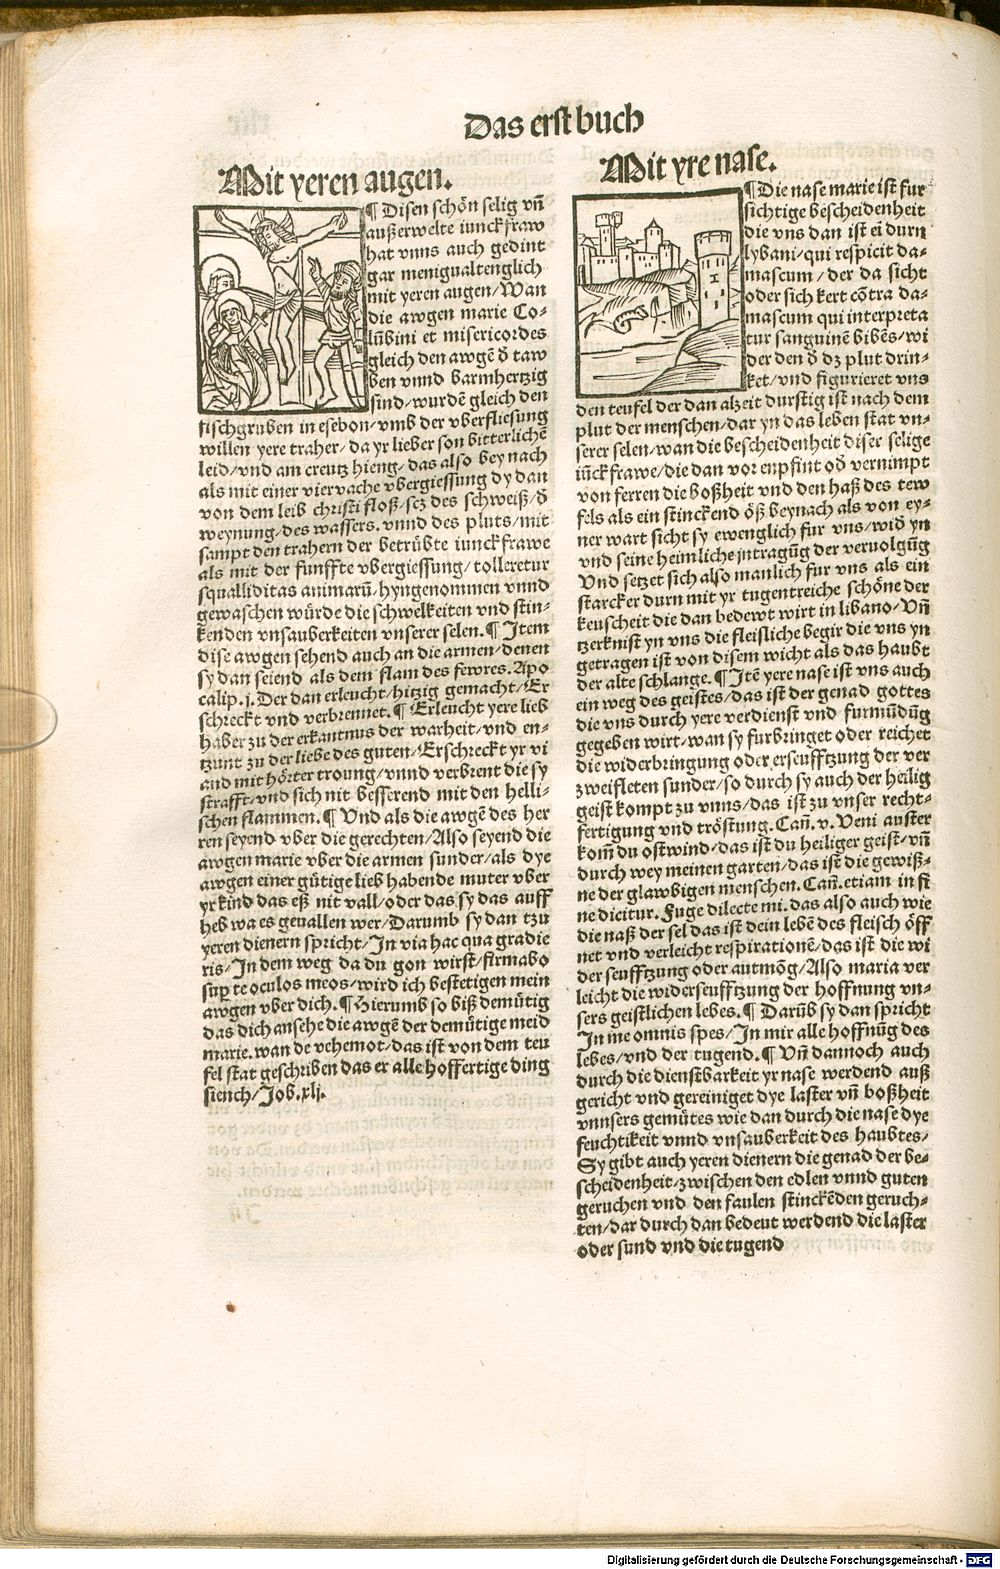 Das erst buch
Mit yeren augen.
¶ Disen schön selig vñ
außerwelte iunckfraw
hat vnns auch gedint
gar menigualtenglich
mit yeren augen/Wan
die awgen marie Co⸗
lũbini et misericordes
gleich den awgẽ d̕ taw
ben vnnd barmhertzig
sind/wurdẽ gleich den
fischgruben in esebon/vmb der vberfliesung
willen yere traher/da yr lieber son bitterlichẽ
leid/vnd am creutz hieng/das also bey nach
als mit einer viervache vbergiessung dy dan
von dem leib christi floß/scz des schweiß/d̕
weynung/des wassers. vnnd des pluts/mit
sampt den trahern der betrübte iunckfrawe
als mit der funffte vbergiessung/tolleretur
squalliditas animarũ/hyngenommen vnnd
gewaschen würde die schwelkeiten vnd stin⸗
kenden vnsauberkeiten vnserer selen.¶ Item
dise awgen sehend auch an die armen/denen
sy dan seiend als dem flam des fewres. Apo
calip.j. Der dan erleucht/hitzig gemacht/Er
schreckt vnd verbrennet.¶ Erleucht yere lieb
haber zu der erkantnus der warheit/vnd en⸗
tzunt zu der liebe des guten/Erschreckt yr vi
and mit hörter troung/vnnd verbrent die sy
strafft/vnd sich nit besserend mit den helli⸗
schen flammen.¶ Vnd als die awgẽ des her
ren seyend vber die gerechten/Also seyend die
awgen marie vber die armen sunder/als dye
awgen einer gütige lieb habende muter vber
yr kind das eß nit vall/oder das sy das auff
heb wa es geuallen wer/Darumb sy dan tzu
yeren dienern spricht/In via hac qua gradie
ris/In dem weg da du gon wirst/firmabo
sup te oculos meos/wird ich bestetigen mein
awgen vber dich.¶ Hierumb so biß demütig
das dich ansehe die awgẽ der demütige meid
marie. wan de vehemot/das ist von dem teu
fel stat geschriben das er alle hoffertige ding
siench/Job.xlj.
Mit yre nase.
¶ Die nase marie ist fur
sichtige bescheidenheit
die vns dan ist eĩ durn
lybani/qui respicit da⸗
mascum/der da sicht
oder sich kert cõtra da⸗
mascum qui interpreta
tur sanguinẽ bibẽs/wi
der den d̕ dz plut drin⸗
ket/vnd figurieret vns
den teufel der dan alzeit durstig ist nach dem
plut der menschen/dar yn das leben stat vn⸗
serer selen/wan die bescheidenheit diser selige
iũckfrawe/die dan vor enpfint od̕ vernimpt
von ferren die boßheit vnd den haß des tew
fels als ein stinckend öß beynach als von ey⸗
ner wart sicht sy ewenglich fur vns/wid̕ yn
vnd seine heimliche jntragũg der veruolgũg
Vnd setzet sich also manlich fur vns als ein
starcker durn mit yr tugentreiche schöne der
keuscheit die dan bedewt wirt in libano/Vñ
tzerknist yn vns die fleisliche begir die vns yn
getragen ist von disem wicht als das haubt
der alte schlange.¶ Itẽ yere nase ist vns auch
ein weg des geistes/das ist der genad gottes
die vns durch yere verdienst vnd furmũdũg
gegeben wirt/wan sy furbringet oder reichet
die widerbringung oder erseufftzung der ver
zweifleten sunder/so durch sy auch der heilig
geist kompt zu vnns/das ist zu vnser recht⸗
fertigung vnd tröstung. Cañ.v. Veni auster
kom̃ du ostwind/das ist du heiliger geist/vñ
durch wey meinen garten/das ist die gewiß⸗
ne der glawbigen menschen. Cañ.etiam in fi
ne dicitur. Fuge dilecte mi. das also auch wie
die naß der sel das ist dein lebẽ des fleisch öff
net vnd verleicht respirationẽ/das ist die wi
der seufftzung oder autmõg/Also maria ver
leicht die widerseufftzung der hoffnung vn⸗
sers geistlichen lebes.¶ Darũb sy dan spricht
In me omnis spes/In mir alle hoffnũg des
lebes/vnd der tugend.¶ Vñ dannoch auch
durch die dienstbarkeit yr nase werdend auß
gericht vnd gereiniget dye laster vñ boßheit
vnnsers gemütes wie dan durch die nase dye
feuchtikeit vnnd vnsauberkeit des haubtes/
Sy gibt auch yeren dienern die genad der be⸗
scheidenheit/zwischen den edlen vnnd guten
geruchen vnd den faulen stinckẽden geruch⸗
ten/dar durch dan bedeut werdend die laster
oder sund vnd die tugend
Digitalisierung gefördert durch die Deutsche Forschungsgemeinschaft - DFG